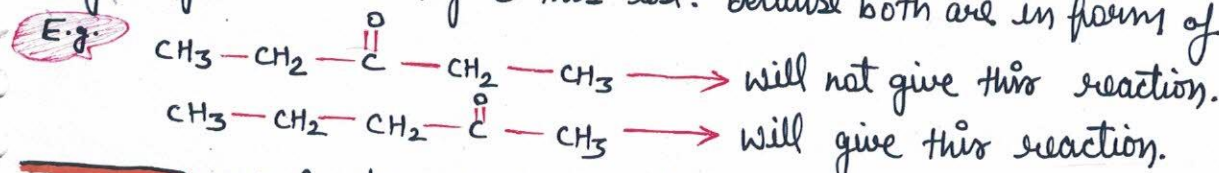 this test. because both are in form of
E.g.
O
CH3 — CH2 — C — CH2 — CH3 → will not give this reaction.
O
CH3 — CH2 — CH2 — C — CH3 → will give this reaction.